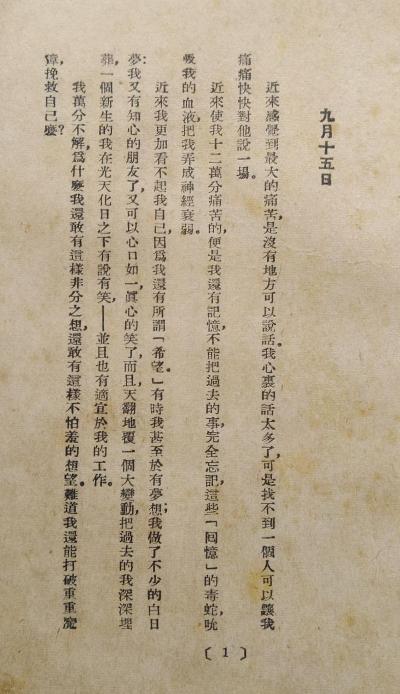 九月十五日
近來感覺到最大的痛苦,是沒有地方可以說話。我心裏的話太多了,可是找不到一個人可以讓我
痛痛快快對他說一場。
近來使我十二萬分痛苦的,便是我還有記憶,不能把過去的事完全忘記。這些「囘憶」的毒蛇,吮
吸我的血液,把我弄成神經衰弱。
近來我更加看不起我自己,因爲我還有所謂「希望。」有時我甚至於有夢想:我做了不少的白日
夢:我又有知心的朋友了,又可以心口如一,眞心的笑了,而且,天翻地覆一個大變動,把過去的我深深埋
葬,一個新生的我在光天化日之下有說有笑,——並且也有適宜於我的工作。
我萬分不解,爲什麼我還敢有這樣非分之想,還敢有這樣不怕羞的想望。難道我還能打破重重魔
障,挽救自己麼?
〔1〕